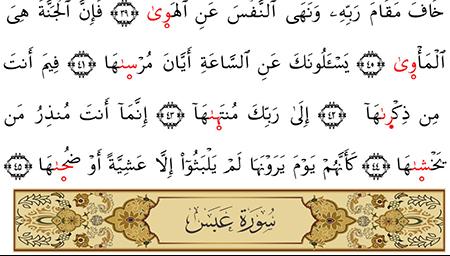 خَافَ مَقَامَ رَبِّهِۦ وَنَهَى ٱلنَّفۡسَ عَنِ ٱلۡهَوَىٰ ٣٩ فَإِنَّ ٱلۡجَنَّةَ هِىَ
ٱلۡمَأۡوَىٰ ٤٠ يَسۡـَٔلُونَكَ عَنِ ٱلسَّاعَةِ أَيَّانَ مُرۡسَىٰهَا ٤١ فِيمَ أَنتَ
مِن ذِكۡرَىٰهَآ ٤٢ إِلَىٰ رَبِّكَ مُنتَهَىٰهَآ ٤٣ إِنَّمَآ أَنتَ مُنذِرُ مَن
يَخۡشَىٰهَا ٤٤ كَأَنَّهُمۡ يَوۡمَ يَرَوۡنَهَا لَمۡ يَلۡبَثُوٓاْ إِلَّا عَشِيَّةً أَوۡ ضُحَىٰهَا ٤٥
سُورَةُ عَبَسَ